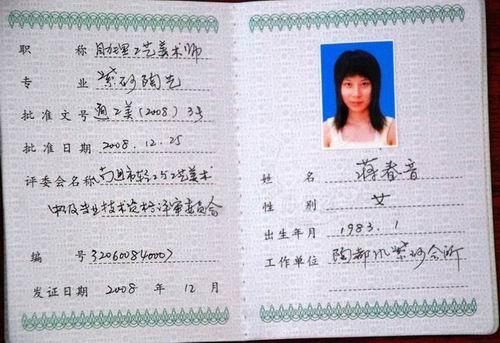 职称 助理工艺美术师
专业 紫砂陶艺
批准文号 通工美(2008)3号
批准日期 2008.12.25
评委会名称 南通市轻工工艺美术
中级专业技术资格评审委员会
编号 320600840007
发证日期 2008 年 12 月
姓名 蒋春音
性别 女
出生年月 1983.1
工作单位 陶都 紫砂会所